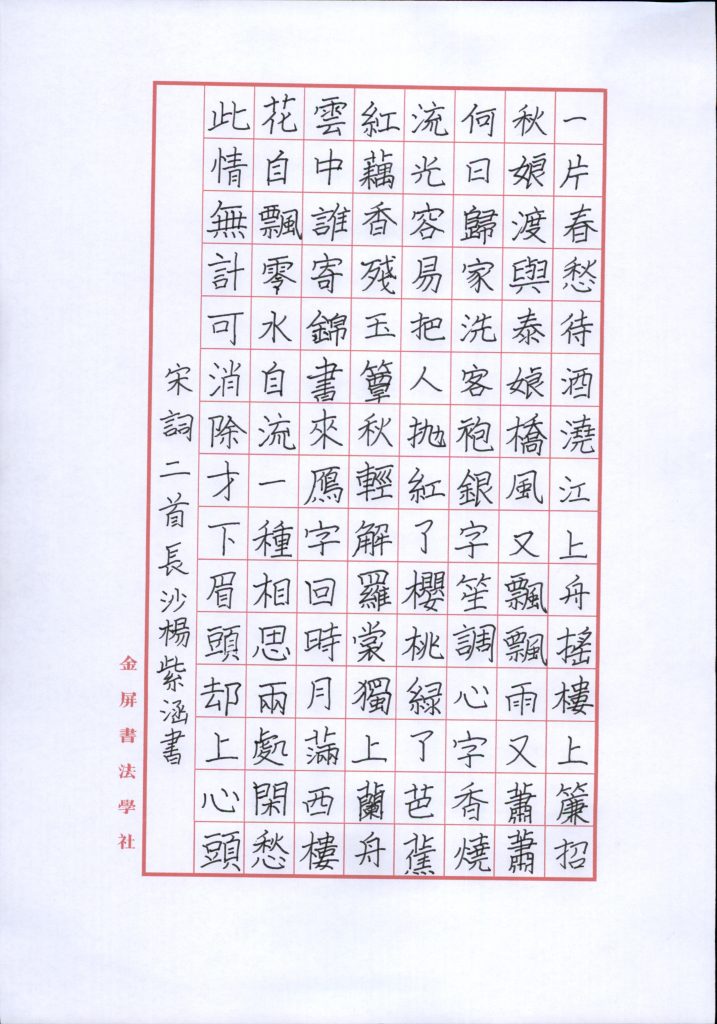 一片春愁待酒澆江上舟搖樓上簾招
秋娘渡與泰娘橋風又飄飄雨又蕭蕭
何日歸家洗客袍銀字笙調心字香燒
流光容易把人拋紅了櫻桃緑了芭蕉
紅藕香殘玉簟秋輕解羅裳獨上蘭舟
雲中誰寄錦書來鴈字回時月滿西樓
花自飄零水自流一種相思兩處閑愁
此情無計可消除才下眉頭却上心頭
宋詞二首長沙楊紫涵書
金屏書法學社